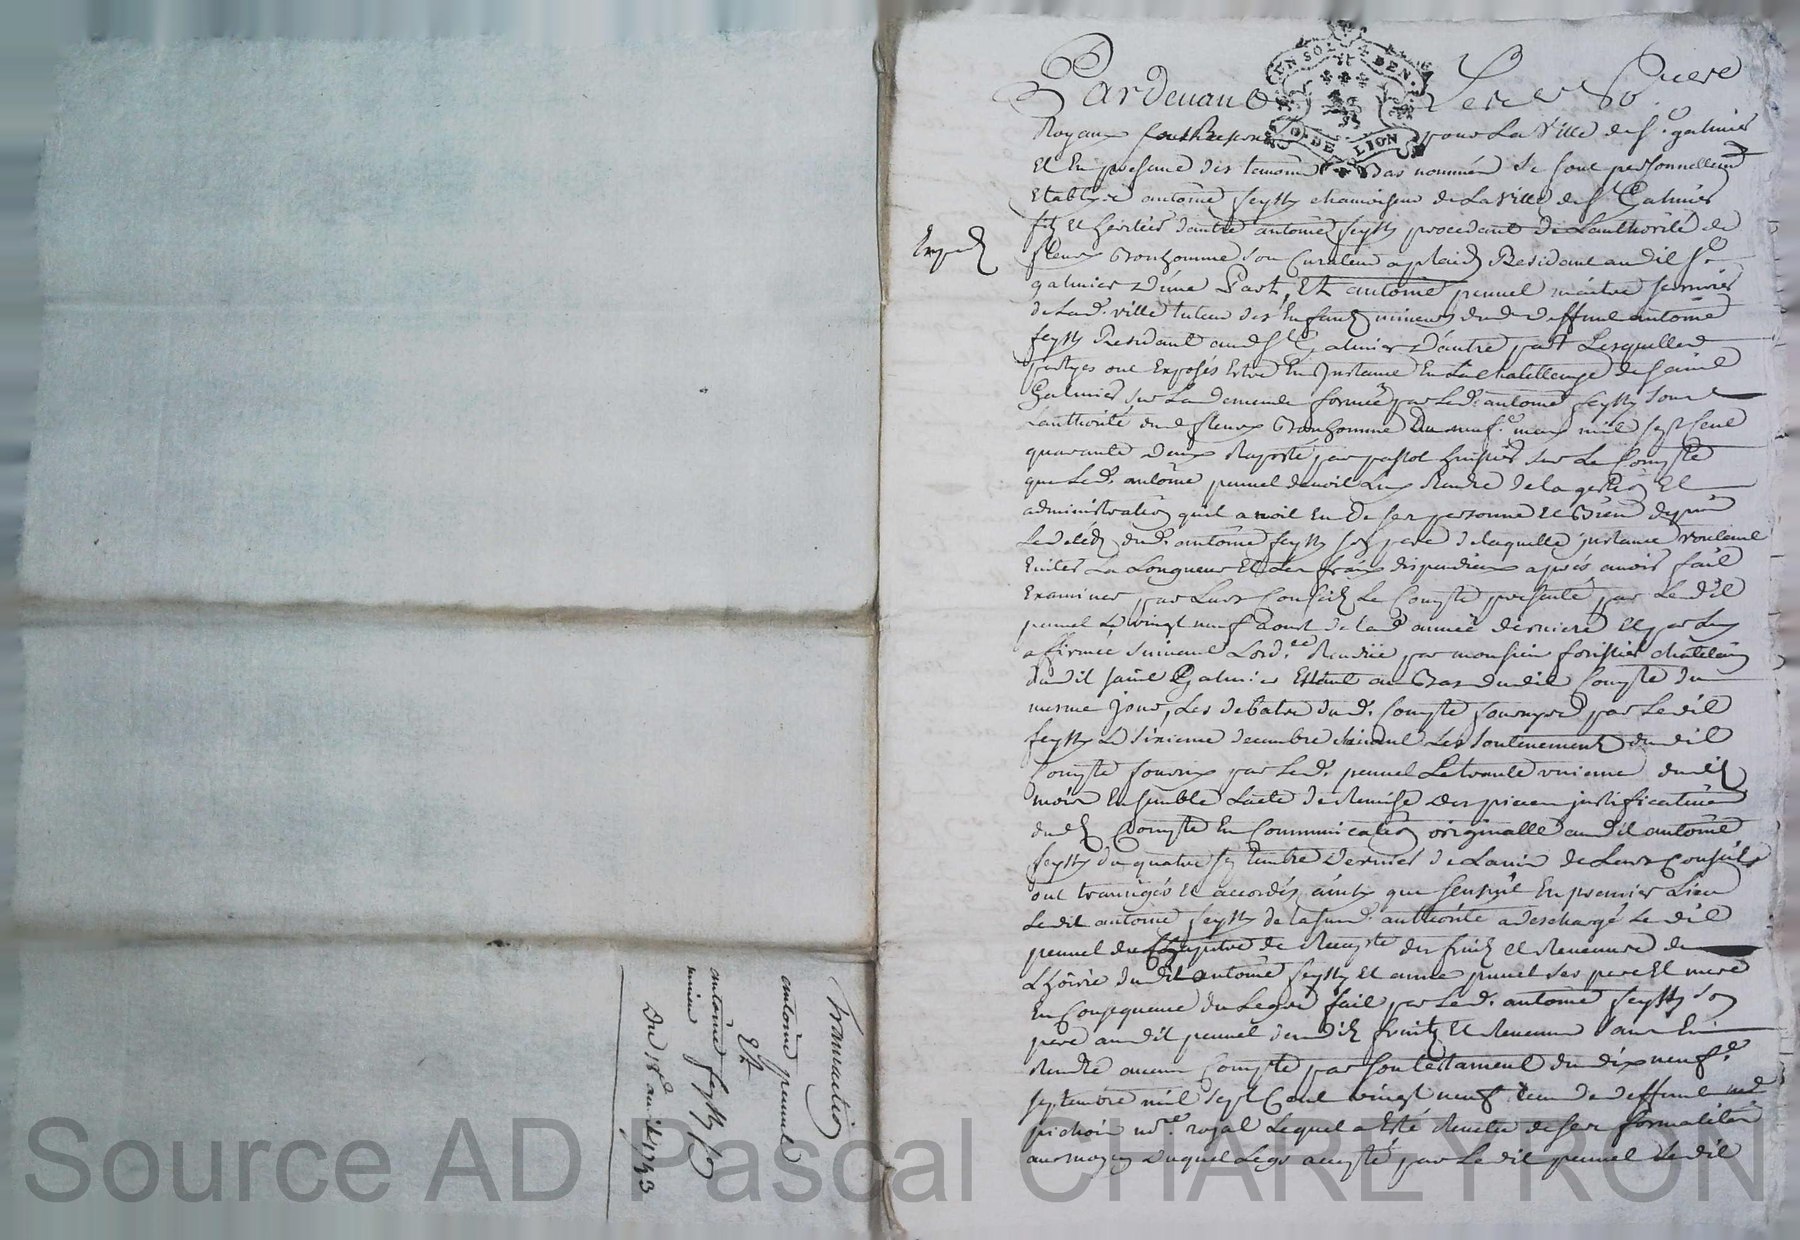 Transaction
antoine peunel
Et
antoine feysty
Du 18e auril 1743
EN SOL DEN
G. DE LION
Pardeuant Les No.res
Royaux soubsignés pour La Ville de St galmier
Et En presence des temoins Bas nommés se sont personnellem.t
Etablys antoine feysty chamoiseur de La Ville de St Galmier
fils Et heritier d'autre antoine feysty procedant de Lauthorité de
fleury Bonhomme son Curateur a plaids Residant audit St
galmier d'une Part, Et antoine peunel maitre serrurier
de Lad. ville tuteur des Enfants mineurs dud. deffunt antoine
feysty Residant aud St Galmier d'autre part Lesquelles
partyes ont Exposés Estre En Instance En La chatellenye de saint
Galmier sur La demande formée par Led. antoine feysty sous
Lauthorité dud fleury Bonhomme Du neuf.e may mil sept Cent
quarante deux Raporté par pastot huissier sur Le Compte
que Led. antoine peunel devoit Luy Rendre de la gestion Et
administration quil avoit Eu De ses personne Et Biens depuis
Le déces dud. antoine feysty son pere de laquelle jnstance voulant
Eviter La Longueur Et Les fraix dispendieux aprés avoir fait
Examiner par Leurs Conseils Le Compte presenté par Ledit
peunel Le vingt neuf aout de lad année derniere Et par Luy
afirmée suivant Lord.ce Rendüe par monsieur forissier chatelain
dudit saint Galmier Estant au Bas dudit Compte du
mesme jour, Les debats dud. Compte fournys par Ledit
feysty Le sixieme decembre suivant Les soutenements dudit
Compte fournix par Led. peunel Le trente vnieme dudit
mois Ensemble Lacte de Remise des pieces justificatives
dud Compte En Communication originalle audit antoine
feysty du quatre septembre dernier de Lavis de Leurs Conseils
ont transigés Et accordés ainsy que sensuit En premier Lieu
Ledit antoine feysty de la susd. authorité a deschargé Ledit
peunel du Chapitre de Recepte des fruits Et Revenus de
Lhoirie dudit antoine feysty Et anne peunel ses pere Et mere
En Consequence du Legs fait par Led. antoine feysty son
pere audit peunel desdits fruits Et Revenus sans En
Rendre aucun Compte par son testament du dix neuf.e
septembre mil sept Cent vingt neuf Receu deffunt
pichon no.re royal Lequel a Esté Revetu de ses formalités
au moyen duquel Legs accepté par Ledit peunel Ledit
Source AD Pascal CHAREYRON